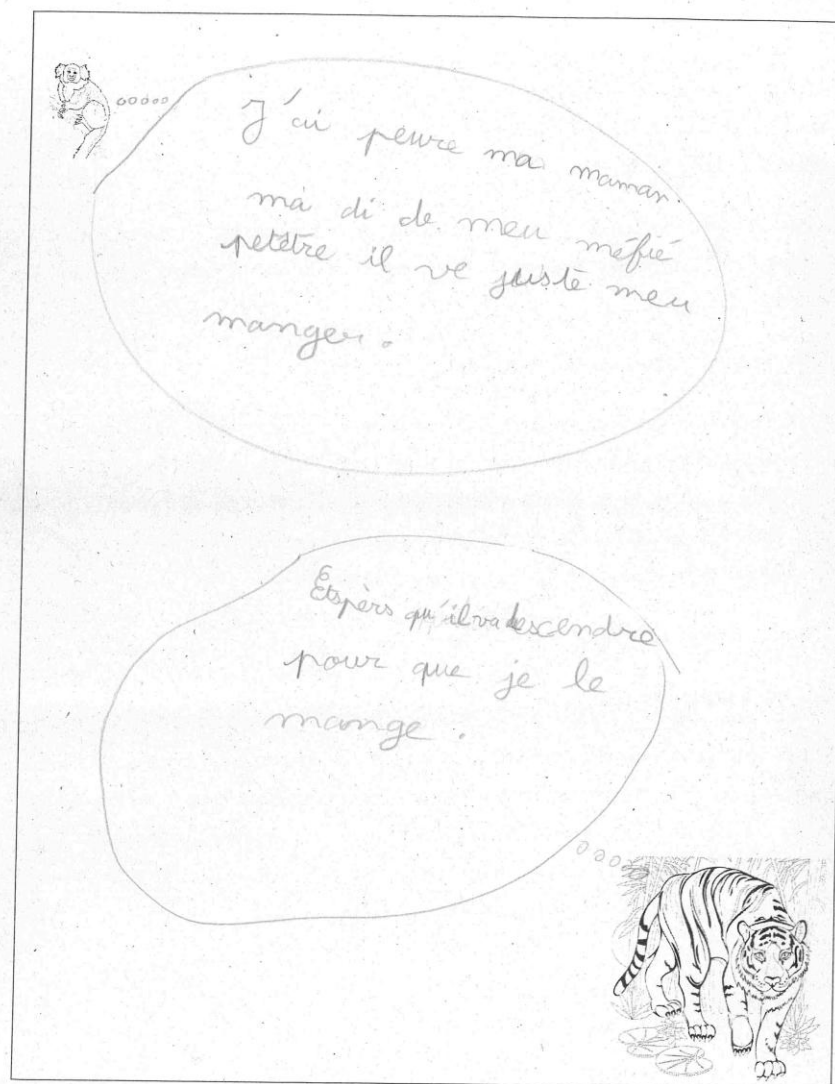 J'ai peure ma maman
ma di de meu méfié
petêtre il ve juste meu
manger.
Etspèrs qu'il va descendre
pour que je le
mange.